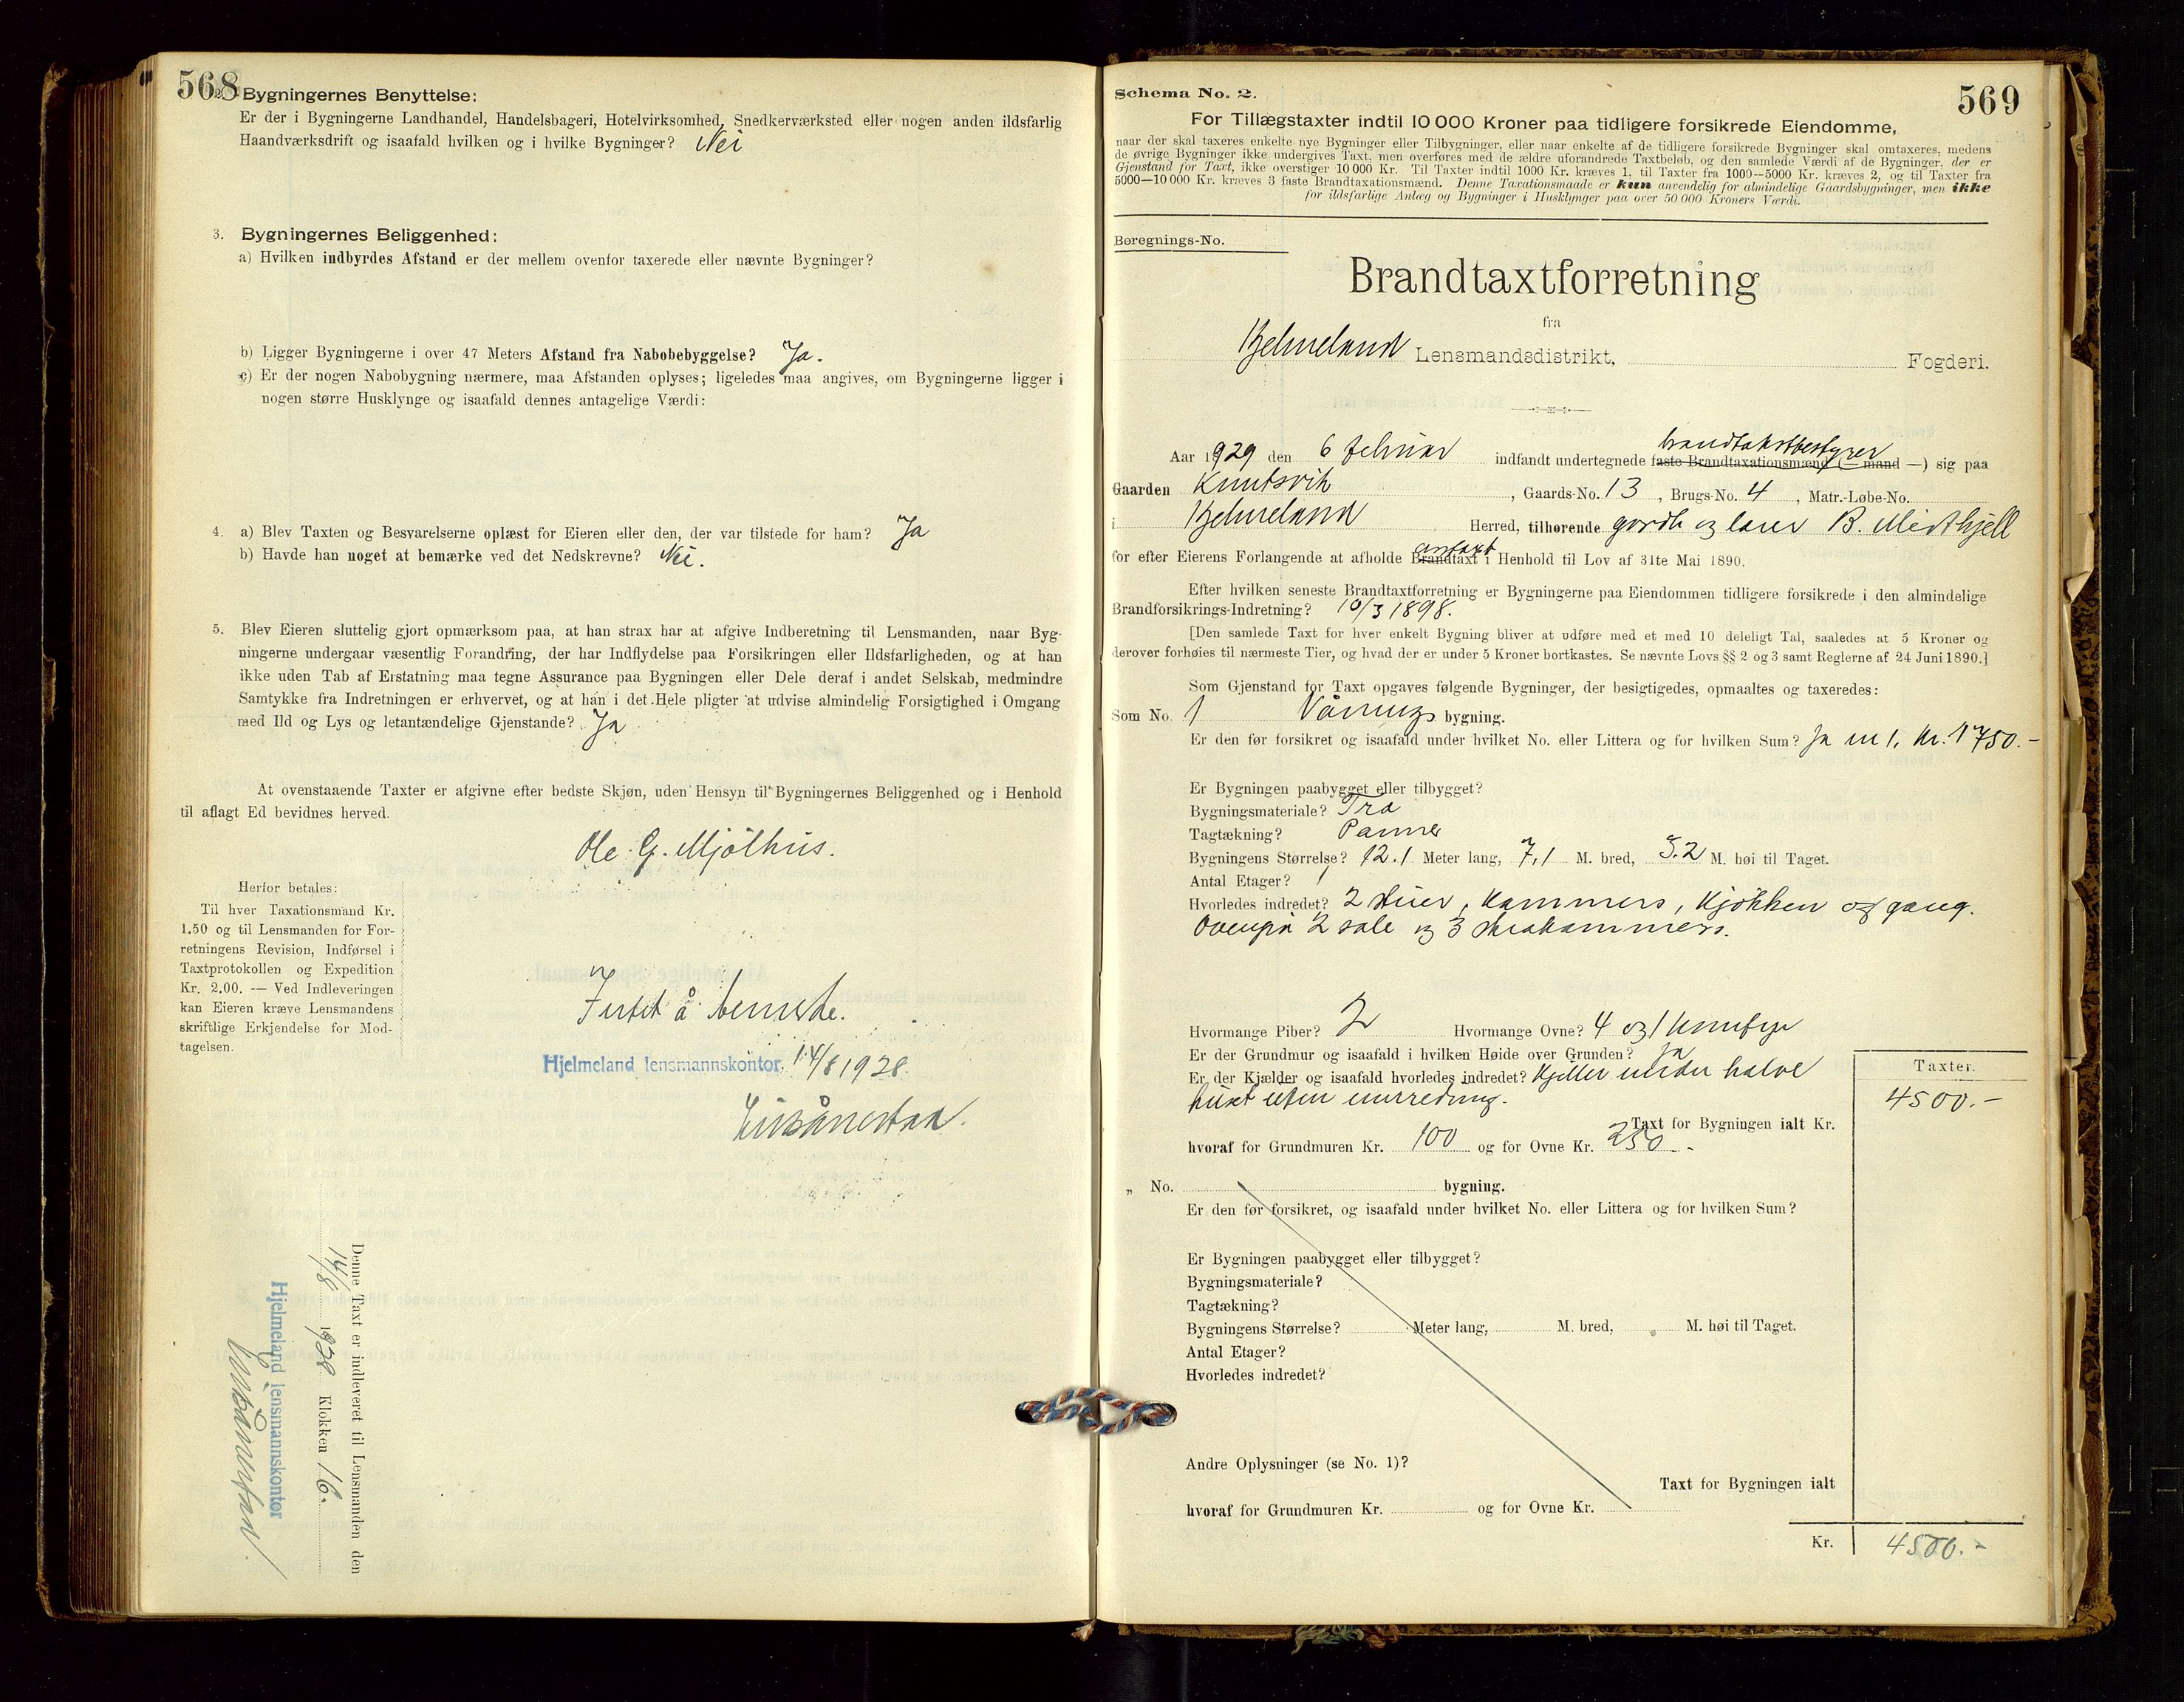 568
2. Bygningernes Benyttelse:
Er der i Bygningerne Landhandel, Handelsbageri, Hotelvirksomhed, Snedkerværksted eller nogen anden ildsfarlig
Haandværksdrift og isaafald hvilken og i hvilke Bygninger? Nei
3. Bygningernes Beliggenhed:
a) Hvilken indbyrdes Afstand er der mellem ovenfor taxerede eller nævnte Bygninger?
b) Ligger Bygningerne i over 47 Meters Afstand fra Nabobebyggelse? Ja.
c) Er der nogen Nabobygning nærmere, maa Afstanden oplyses; ligeledes maa angives, om Bygningerne ligger i
nogen større Husklynge og isaafald dennes antagelige Værdi:
4. a) Blev Taxten og Besvarelserne oplæst for Eieren eller den, der var tilstede for ham? Ja
b) Havde han noget at bemærke ved det Nedskrevne? Nei.
5. Blev Eieren sluttelig gjort opmærksom paa, at han strax har at afgive Indberetning til Lensmanden, naar Byg-
ningerne undergaar væsentlig Forandring, der har Indflydelse paa Forsikringen eller Ildsfarligheden, og at han
ikke uden Tab af Erstatning maa tegne Assurance paa Bygningen eller Dele deraf i andet Selskab, medmindre
Samtykke fra Indretningen er erhvervet, og at han i det Hele pligter at udvise almindelig Forsigtighed i Omgang
med Ild og Lys og letantændelige Gjenstande? Ja
At ovenstaaende Taxter er afgivne efter bedste Skjøn, uden Hensyn til Bygningernes Beliggenhed og i Henhold
til aflagt Ed bevidnes herved.
Ole G. Mjølhus.
Herfor betales:
Til hver Taxationsmand Kr.
1.50 og til Lensmanden for For-
retningens Revision, Indførsel i
Taxtprotokollen og Expedition
Kr. 2.00. — Ved Indleveringen
kan Eieren kræve Lensmandens
skriftlige Erkjendelse for Mod-
tagelsen.
Intet å bemerke.
Hjelmeland lensmannskontor, 14/8 1928.
Denne Taxt er indleveret til Lensmanden den
14/8 1928. Klokken 16.
Hjelmeland lensmannskontor
569
Schema No. 2.
For Tillægstaxter indtil 10 000 Kroner paa tidligere forsikrede Eiendomme,
naar der skal taxeres enkelte nye Bygninger eller Tilbygninger, eller naar enkelte af de tidligere forsikrede Bygninger skal omtaxeres, medens
de øvrige Bygninger ikke undergives Taxt, men overføres med de ældre uforandrede Taxtbeløb, og den samlede Værdi af de Bygninger, der er
Gjenstand for Taxt, ikke overstiger 10 000 Kr. Til Taxter indtil 1000 Kr. kræves 1, til Taxter fra 1000—5000 Kr. kræves 2, og til Taxter fra
5000—10 000 Kr. kræves 3 faste Brandtaxationsmænd. Denne Taxationsmaade er kun anvendelig for almindelige Gaardsbygninger, men ikke
for ildsfarlige Anlæg og Bygninger i Husklynger paa over 50 000 Kroners Værdi.
Beregnings-No.
Brandtaxtforretning
fra
Hjelmeland Lensmandsdistrikt, Fogderi.
brandtakstbestyrer
Aar 1929 den 6 februar indfandt undertegnede faste Brandtaxationsmænd (— mand —) sig paa
Gaarden Knutsvik, Gaards-No. 13, Brugs-No. 4, Matr.-Løbe-No.
i Hjelmeland Herred, tilhørende gardb. og lærer B. Midthjell
omtaxt
for efter Eierens Forlangende at afholde Brandtaxt i Henhold til Lov af 31te Mai 1890.
Efter hvilken seneste Brandtaxtforretning er Bygningerne paa Eiendommen tidligere forsikrede i den almindelige
Brandforsikrings-Indretning? 10/3 1898.
[Den samlede Taxt for hver enkelt Bygning bliver at udføre med et med 10 deleligt Tal, saaledes at 5 Kroner og
derover forhøies til nærmeste Tier, og hvad der er under 5 Kroner bortkastes. Se nævnte Lovs §§ 2 og 3 samt Reglerne af 24 Juni 1890.]
Som Gjenstand for Taxt opgaves følgende Bygninger, der besigtigedes, opmaaltes og taxeredes:
Som No. 1 Vånings bygning.
Er den før forsikret og isaafald under hvilket No. eller Littera og for hvilken Sum? Ja m 1. Kr. 1750.-
Er Bygningen paabygget eller tilbygget?
Bygningsmateriale? Tra
Tagtækning? Panner
Bygningens Størrelse? 12.1 Meter lang, 7,1 M. bred, 5.2 M. høi til Taget.
Antal Etager? 1
Hvorledes indredet? 2 stuer, kammers, kjøkken og gang.
Ovenpå 2 sale og 3 skråkammers.
Hvormange Piber? 2 Hvormange Ovne? 4 og 1 komfyr
Er der Grundmur og isaafald i hvilken Høide over Grunden? Ja
Er der Kjælder og isaafald hvorledes indredet? Kjeller under halve
huset uten innredning.
Taxter.
4500.-
Taxt for Bygningen ialt Kr.
hvoraf for Grundmuren Kr. 100 og for Ovne Kr. 250.-
„ No. bygning.
Er den før forsikret, og isaafald under hvilket No. eller Littera og for hvilken Sum?
Er Bygningen paabygget eller tilbygget?
Bygningsmateriale?
Tagtækning?
Bygningens Størrelse? Meter lang, M. bred, M. høi til Taget.
Antal Etager?
Hvorledes indredet?
Andre Oplysninger (se No. 1)?
Taxt for Bygningen ialt
hvoraf for Grundmuren Kr. og for Ovne Kr.
Kr. 4500.-